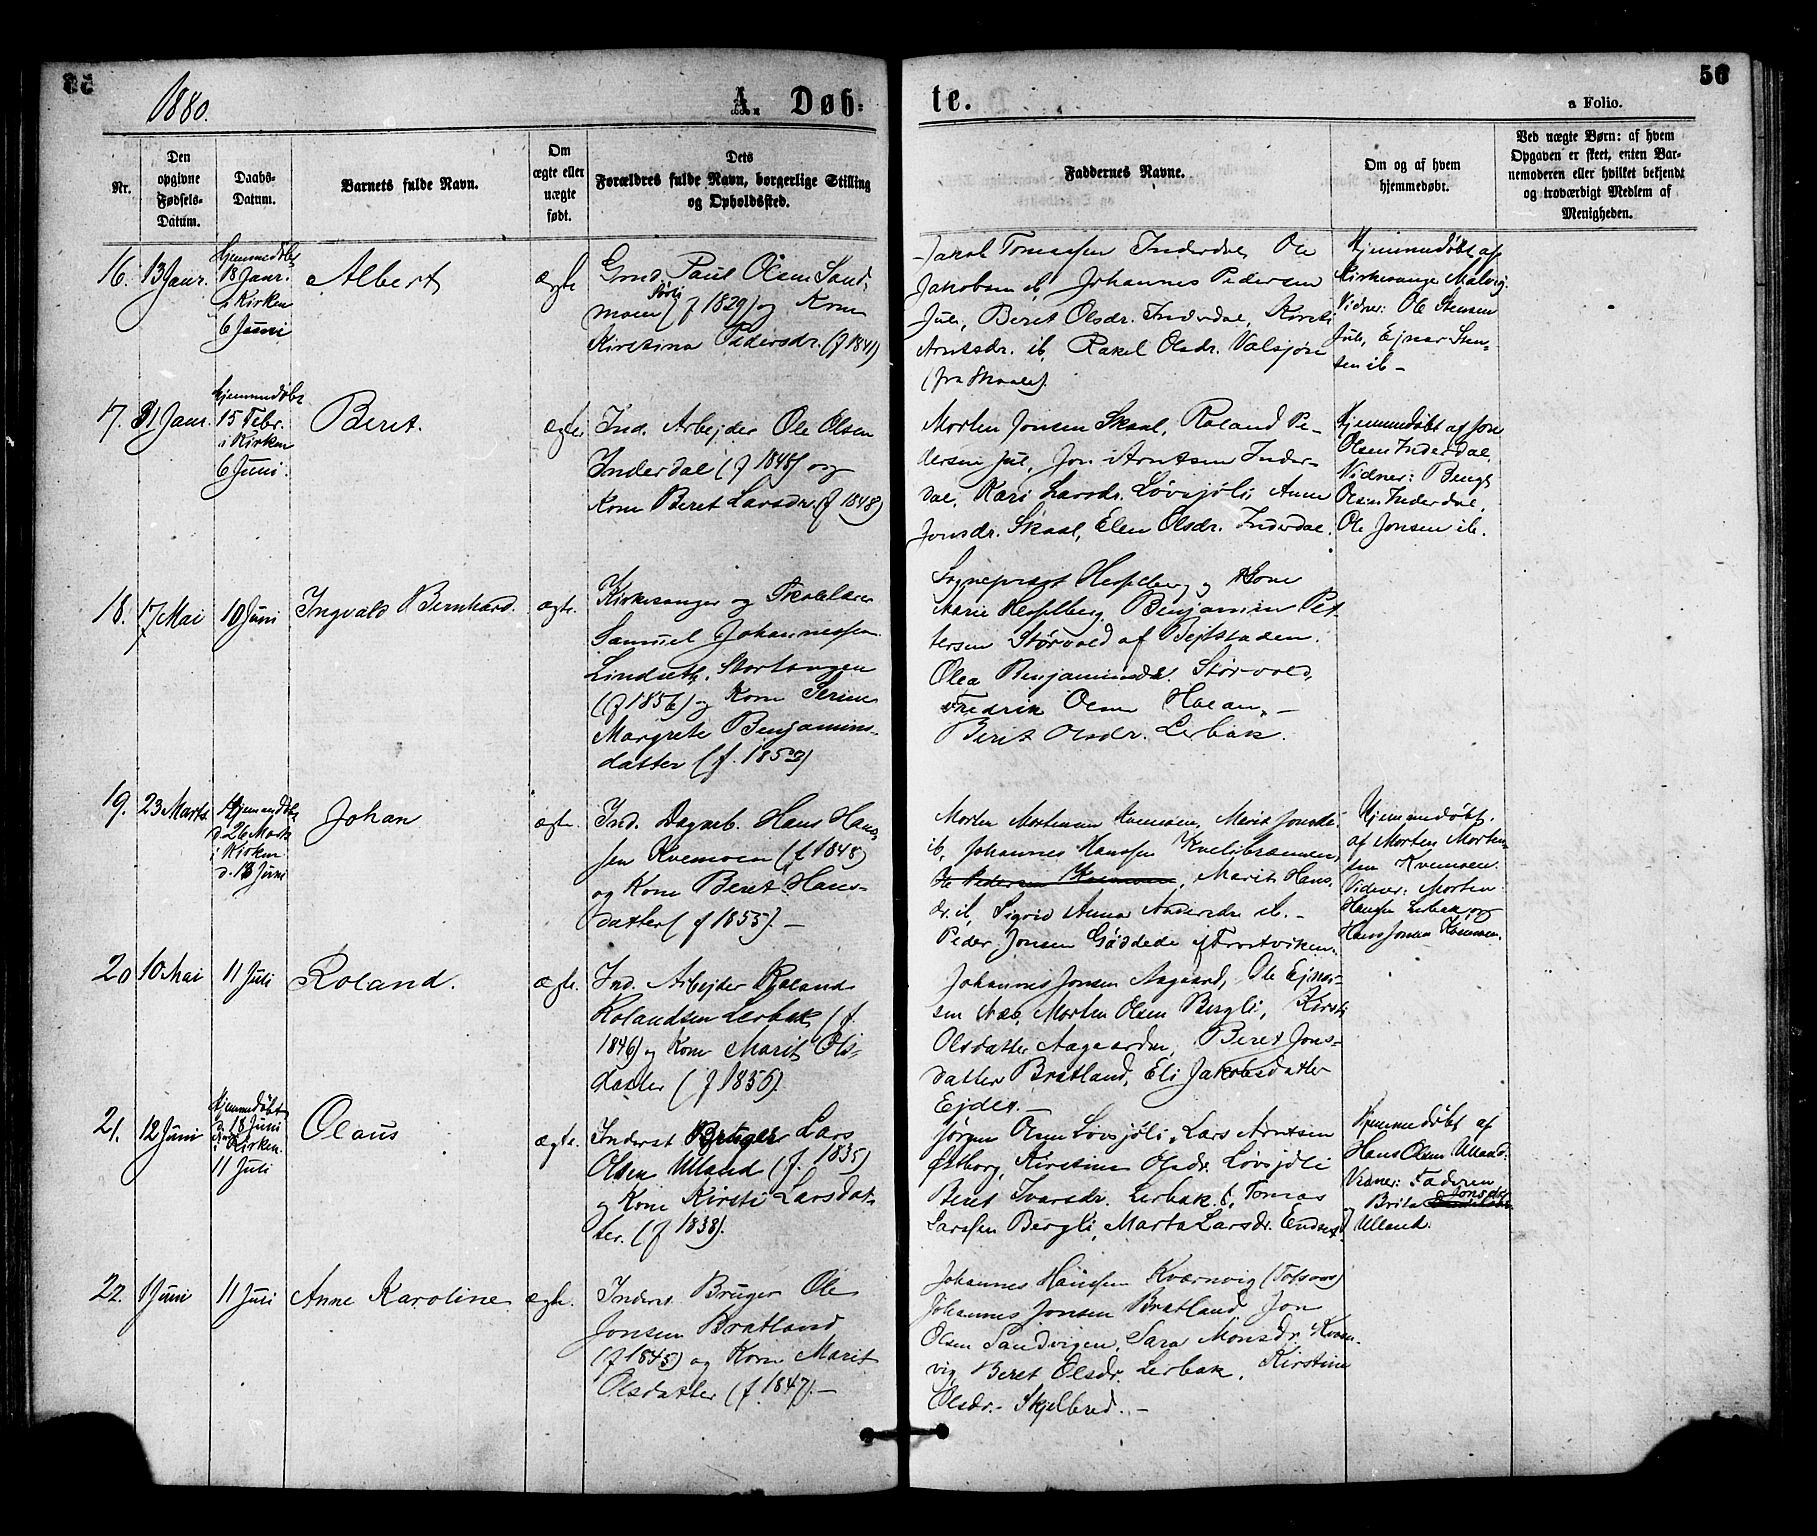 1880.
A. Døb-
te.
56
a Folio.
Nr.
Den
opgivne
Fødsels-
Datum.
Daabs-
Datum.
Barnets fulde Navn.
Om
ægte eller
uægte
født.
Dets
Forældres fulde Navn, borgerlige Stilling
og Opholdssted.
Faddernes Navne.
Om og af hvem
hjemmedøbt.
Ved uægte Børn: af hvem
Opgaven er skeet, enten Bar-
nemoderen eller hvilket bekjendt
og troværdigt Medlem af
Menigheden.
16. 13 Janr.
Hjemmedøbt
18 Janr.
i Kirken
6 Juni
Albert
ægte
Grnd. Paul Olsen Sand-
moen Sørli (f 1829) og Kone
Kirstina Pedersdr. (f 1841)
Jakob Tomassen Inderdal, Ole
Jakobsen ib, Johannes Pedersen
Jule, Beret Olsdr. Inderdal, Kirsti
Arntsdr. ib, Rakel Olsdr. Valsjøn
(fra Skaale).
Hjemmedøbt af
Kirkesanger Malvig.
Vidner: Ole Stensen
Jule, Ejnar Sten-
sen ib -
17. 31 Janr.
Hjemmedøbt
15 Febr.
i Kirken
6 Juni.
Beret.
ægte
Ind. Arbejder Ole Olsen
Inderdal (f 1848) og
Kone Beret Larsdr. (f 1848)
Morten Jonsen Skaal, Roland Pe-
dersen Jul, Jon Arntsen Inder-
dal, Kari Larsdr. Løvsjøli, Anne
Jonsdr. Skaal, Elen Olsdr. Inderdal.
Hjemmedøbt af Jon
Olsen Inderdal.
Vidner: Bengt
Olsen Inderdal,
Ole Jonsen ib.
18. 17 Mai
10 Juni
Ingvald Bernhard.
ægte.
Kirkesanger og Skolelærer
Samuel Johannessen
Lindseth, Nortangen
(f 1856) og Kone Serine
Margrete Benjamins-
datter (f. 1853)
Sognepræst Hesselberg og Kone
Marie Hesselberg, Benjamin Pet-
tersen Størvold af Bejtstaden.
Olea Benjaminsdr. Størvold,
Fredrik Olsen Holand, -
Beret Olsdr. Lerbak.
19. 23 Marts
Hjemmedøbt
d. 26 Marts
i Kirken
d. 13 Juni
Johan
ægte.
Ind. Dagarb. Hans Han-
sen Kvemoen (f 1848)
og Kone Beret Hans-
datter (f 1855). -
Morten Mortensen Kvemoen, Marit Jonsdr.
ib, Johannes Hanssen Kvelibræmen,
Ole Pedersen Kvemoen, Marit Hans-
dr. ib, Sigrid Anna Andersdr ib. -
Peder Jonsen Gäddede i Frostviken.
Hjemmedøbt
af Morten Morten-
sen Kvemoen.
Vidner: Morten
Hansen Lerbak og
Hans Jonsen Kvemoen.
20 10 Mai
11 Juli
Roland.
ægte.
Ind. Arbejder Roland
Rolandsen Lerbak, (f.
1846) og Kone Marit Ols-
datter (f 1856).
Johannes Jonsen Aagaard, Ole Ejnar-
sen Næs, Morten Olsen Bergli, Kirsti
Olsdatter Aagaarden, Beret Jons-
datter Bratland, Eli Jakobsdatter
Ejdet. -
21. 12 Juni
Hjemmedøbt
d. 18 Juni
i Kirken
11 Juli
Olaus
ægte.
Inderst Bruger Lars
Olsen Ulland (f. 1835)
og Kone Kirsti Larsdat-
ter. (f 1838).
Jørgen Olsen Løvsjøli, Lars Arntsen
Østborg, Kirstine Olsdr. Løvsjøli
Beret Ivarsdr. Lerbak, Tomas
Larssen Bergli, Marta Larsdr. Endnes
Hjemmedøbt af
Hans Olsen Ulland.
Vidner: Faderen
Brita Jonsdr
Ulland.
22. 1 Juni
11 Juli
Anne Karoline.
ægte.
Inderst Bruger Ole
Jonsen Bratland
(f 1845) og Kone Marit
Olsdatter (f. 1847). -
Johannes Hanssen Kværnvig
Johannes Jonsen Bratland, Jon
Olsen Sandvigen, Sara Monsdr. Kværn-
vig, Beret Olsdr. Lerbak, Kirstine
Olsdr. Skjelbred. -